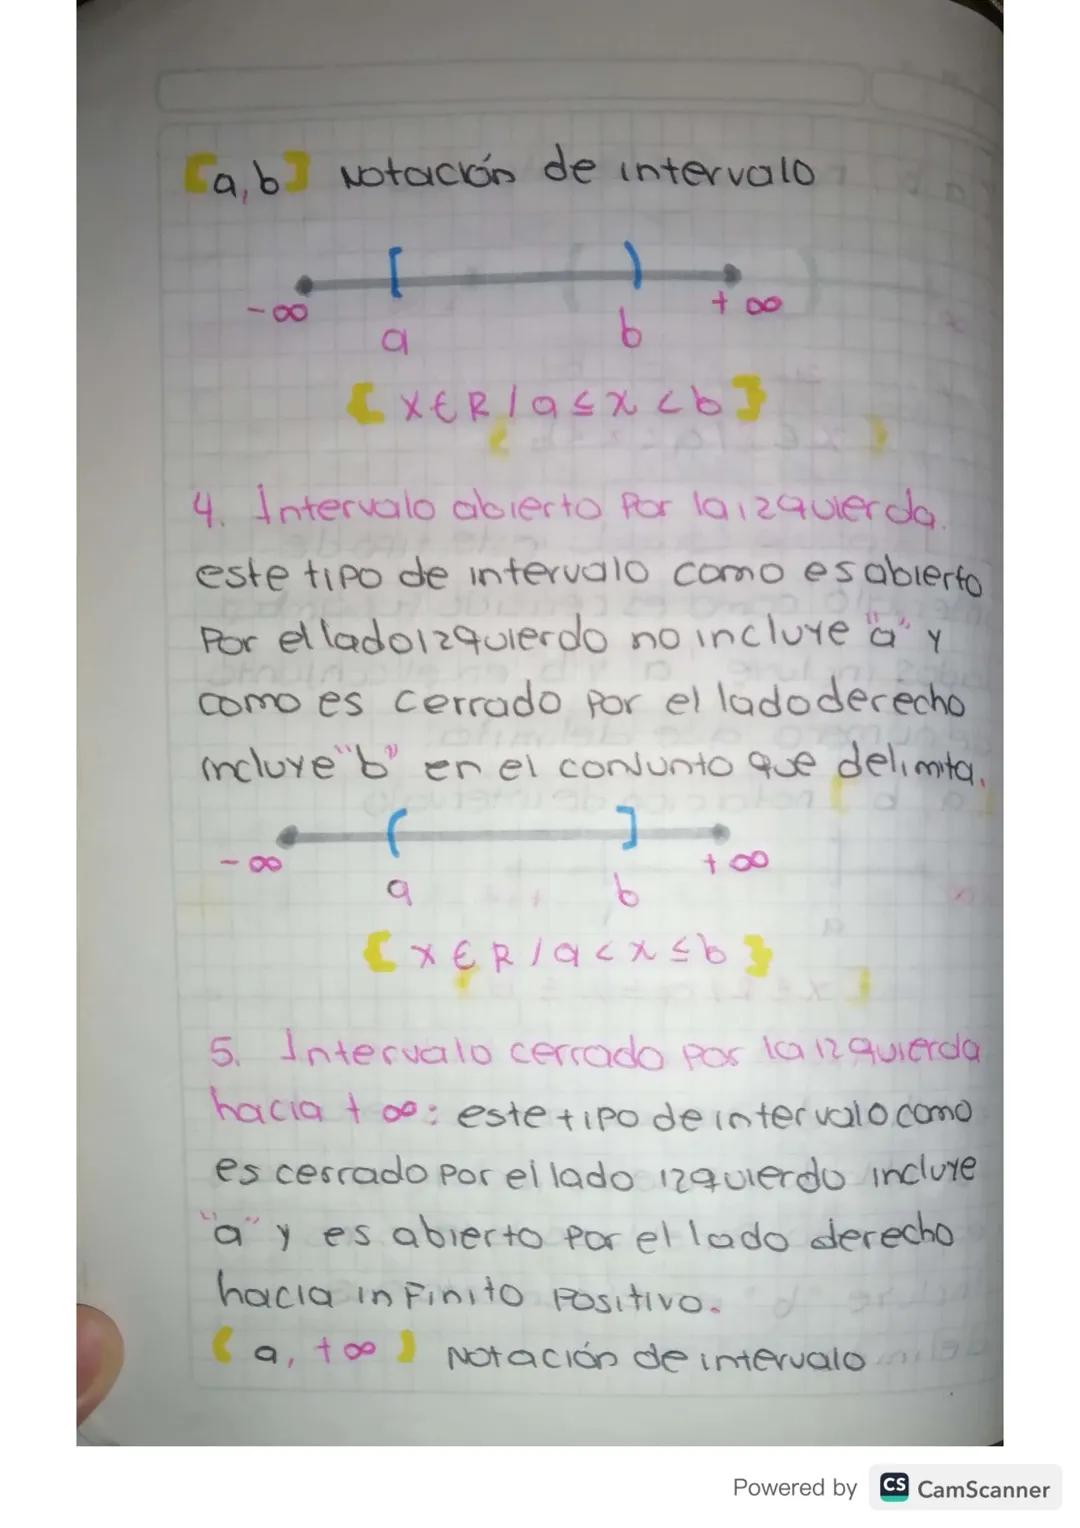 [a,b] Notación de intervalo
-∞ [ ) +∞
a b
{ x∈R/a≤x<b}
4. Intervalo abierto Por la izquierda.
este tipo de intervalo como es abierto
Por el lado izquierdo no incluye "a" y
como es cerrado por el lado derecho
incluye "b" en el conjunto que delimita.
-∞ ( ] +∞
a b
{ x∈R/a<x≤b}
5. Intervalo cerrado por la izquierda
hacia +∞: este tipo de intervalo como
es cerrado por el lado izquierdo incluye
"a" y es abierto por el lado derecho
hacia infinito Positivo.
(a, +∞) Notación de intervalo
Powered by CS CamScanner